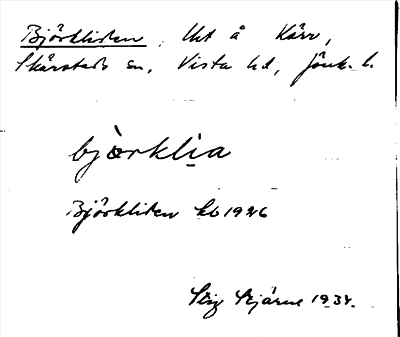 Björkliden. Uht å Kärr,
Skärstads sn, Vista hd, Jönk. l.
bjòrklia
Björkliden kb 1926
Stig Stjärne 1934.